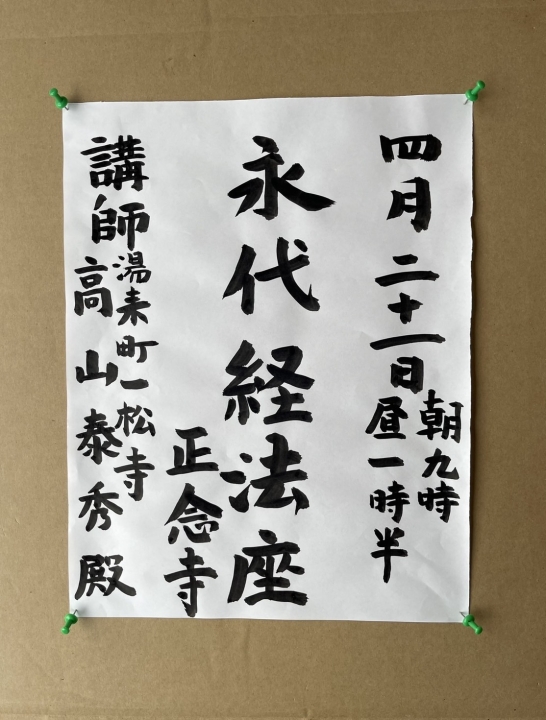 四月二十一日
朝九時
昼一時半
永代経法座
正念寺
講師
湯来町一松寺
高山泰秀殿